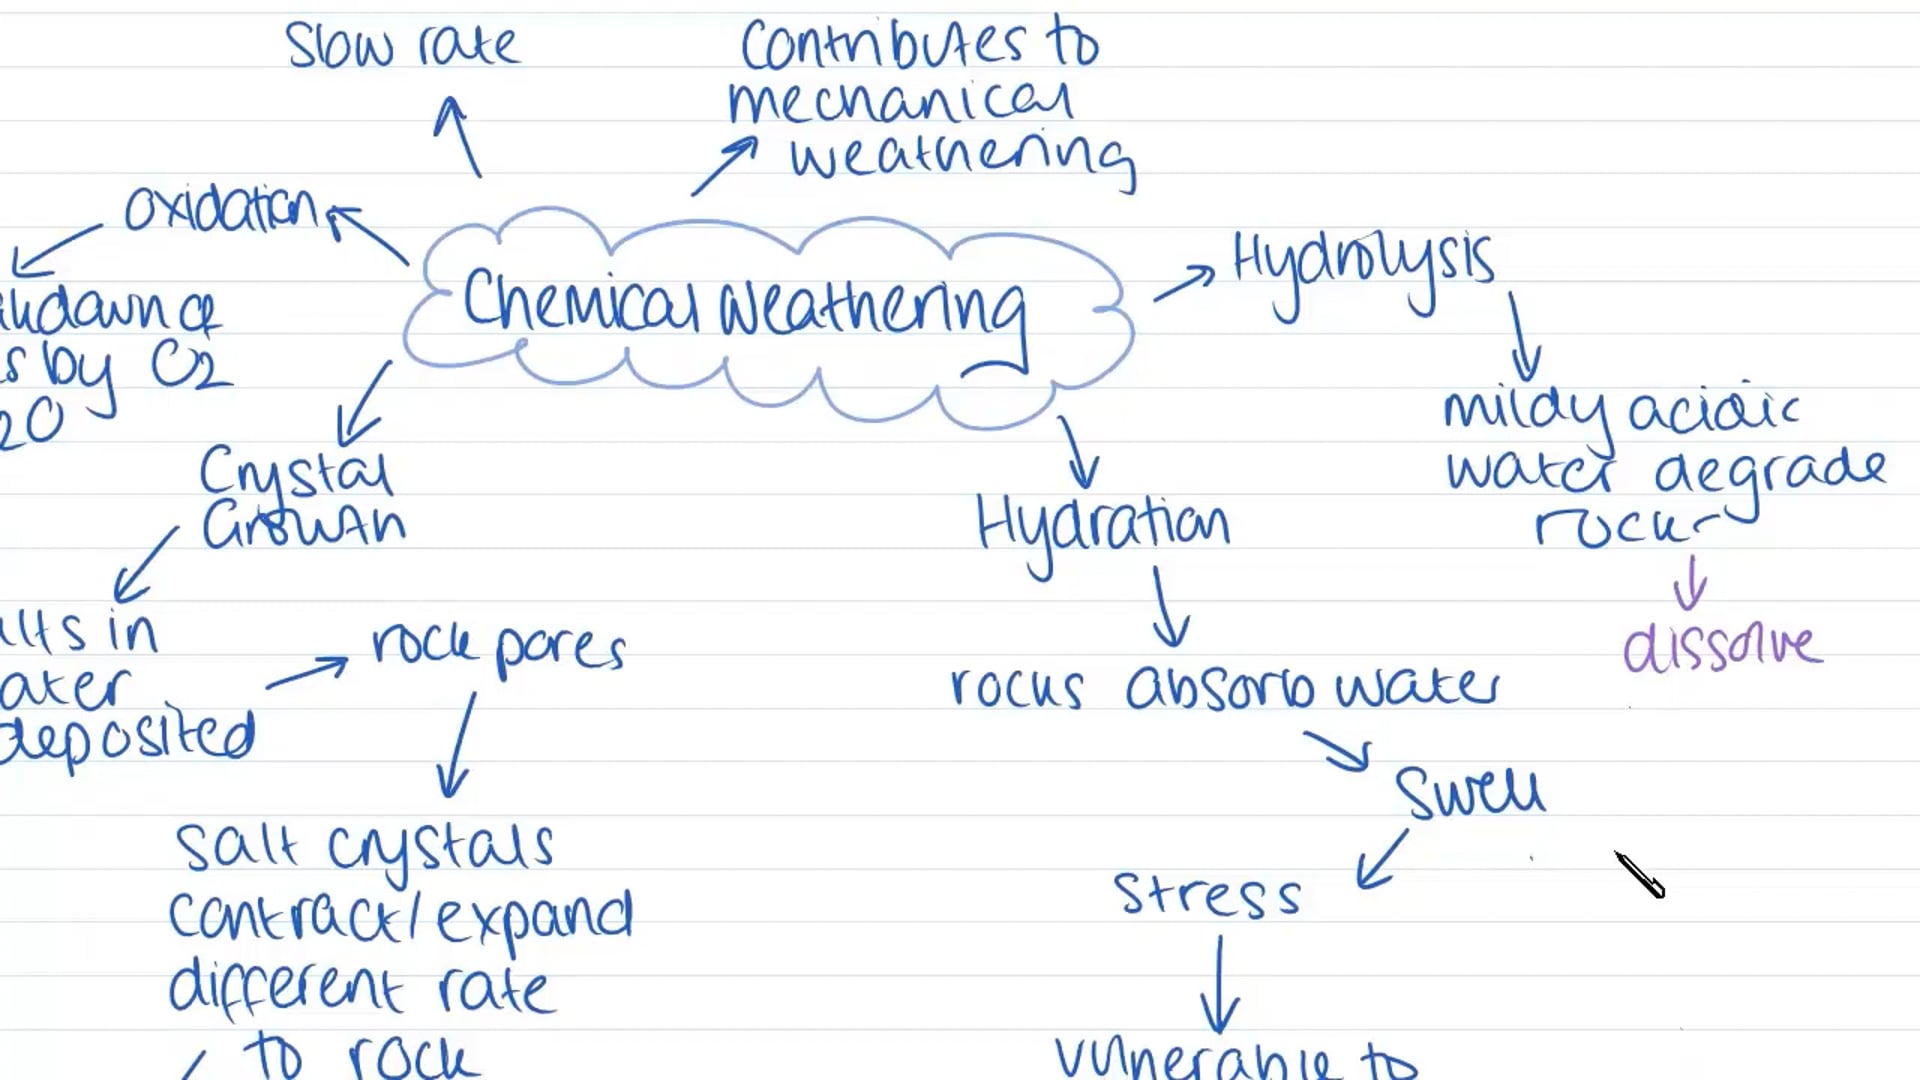 Slow rate
Contributes to
mechanical
weathering
Oxidation
Chemical Weathering
Hydrolysis
s by O2
2O
mildy acidic
water degrade
rock
dissolve
Crystal
Growth
Hydration
lts in
ater
deposited
rock pores
rocks absorb water
Swell
Stress
Salt crystals
contract/expand
different rate
to rock
vulnerable to